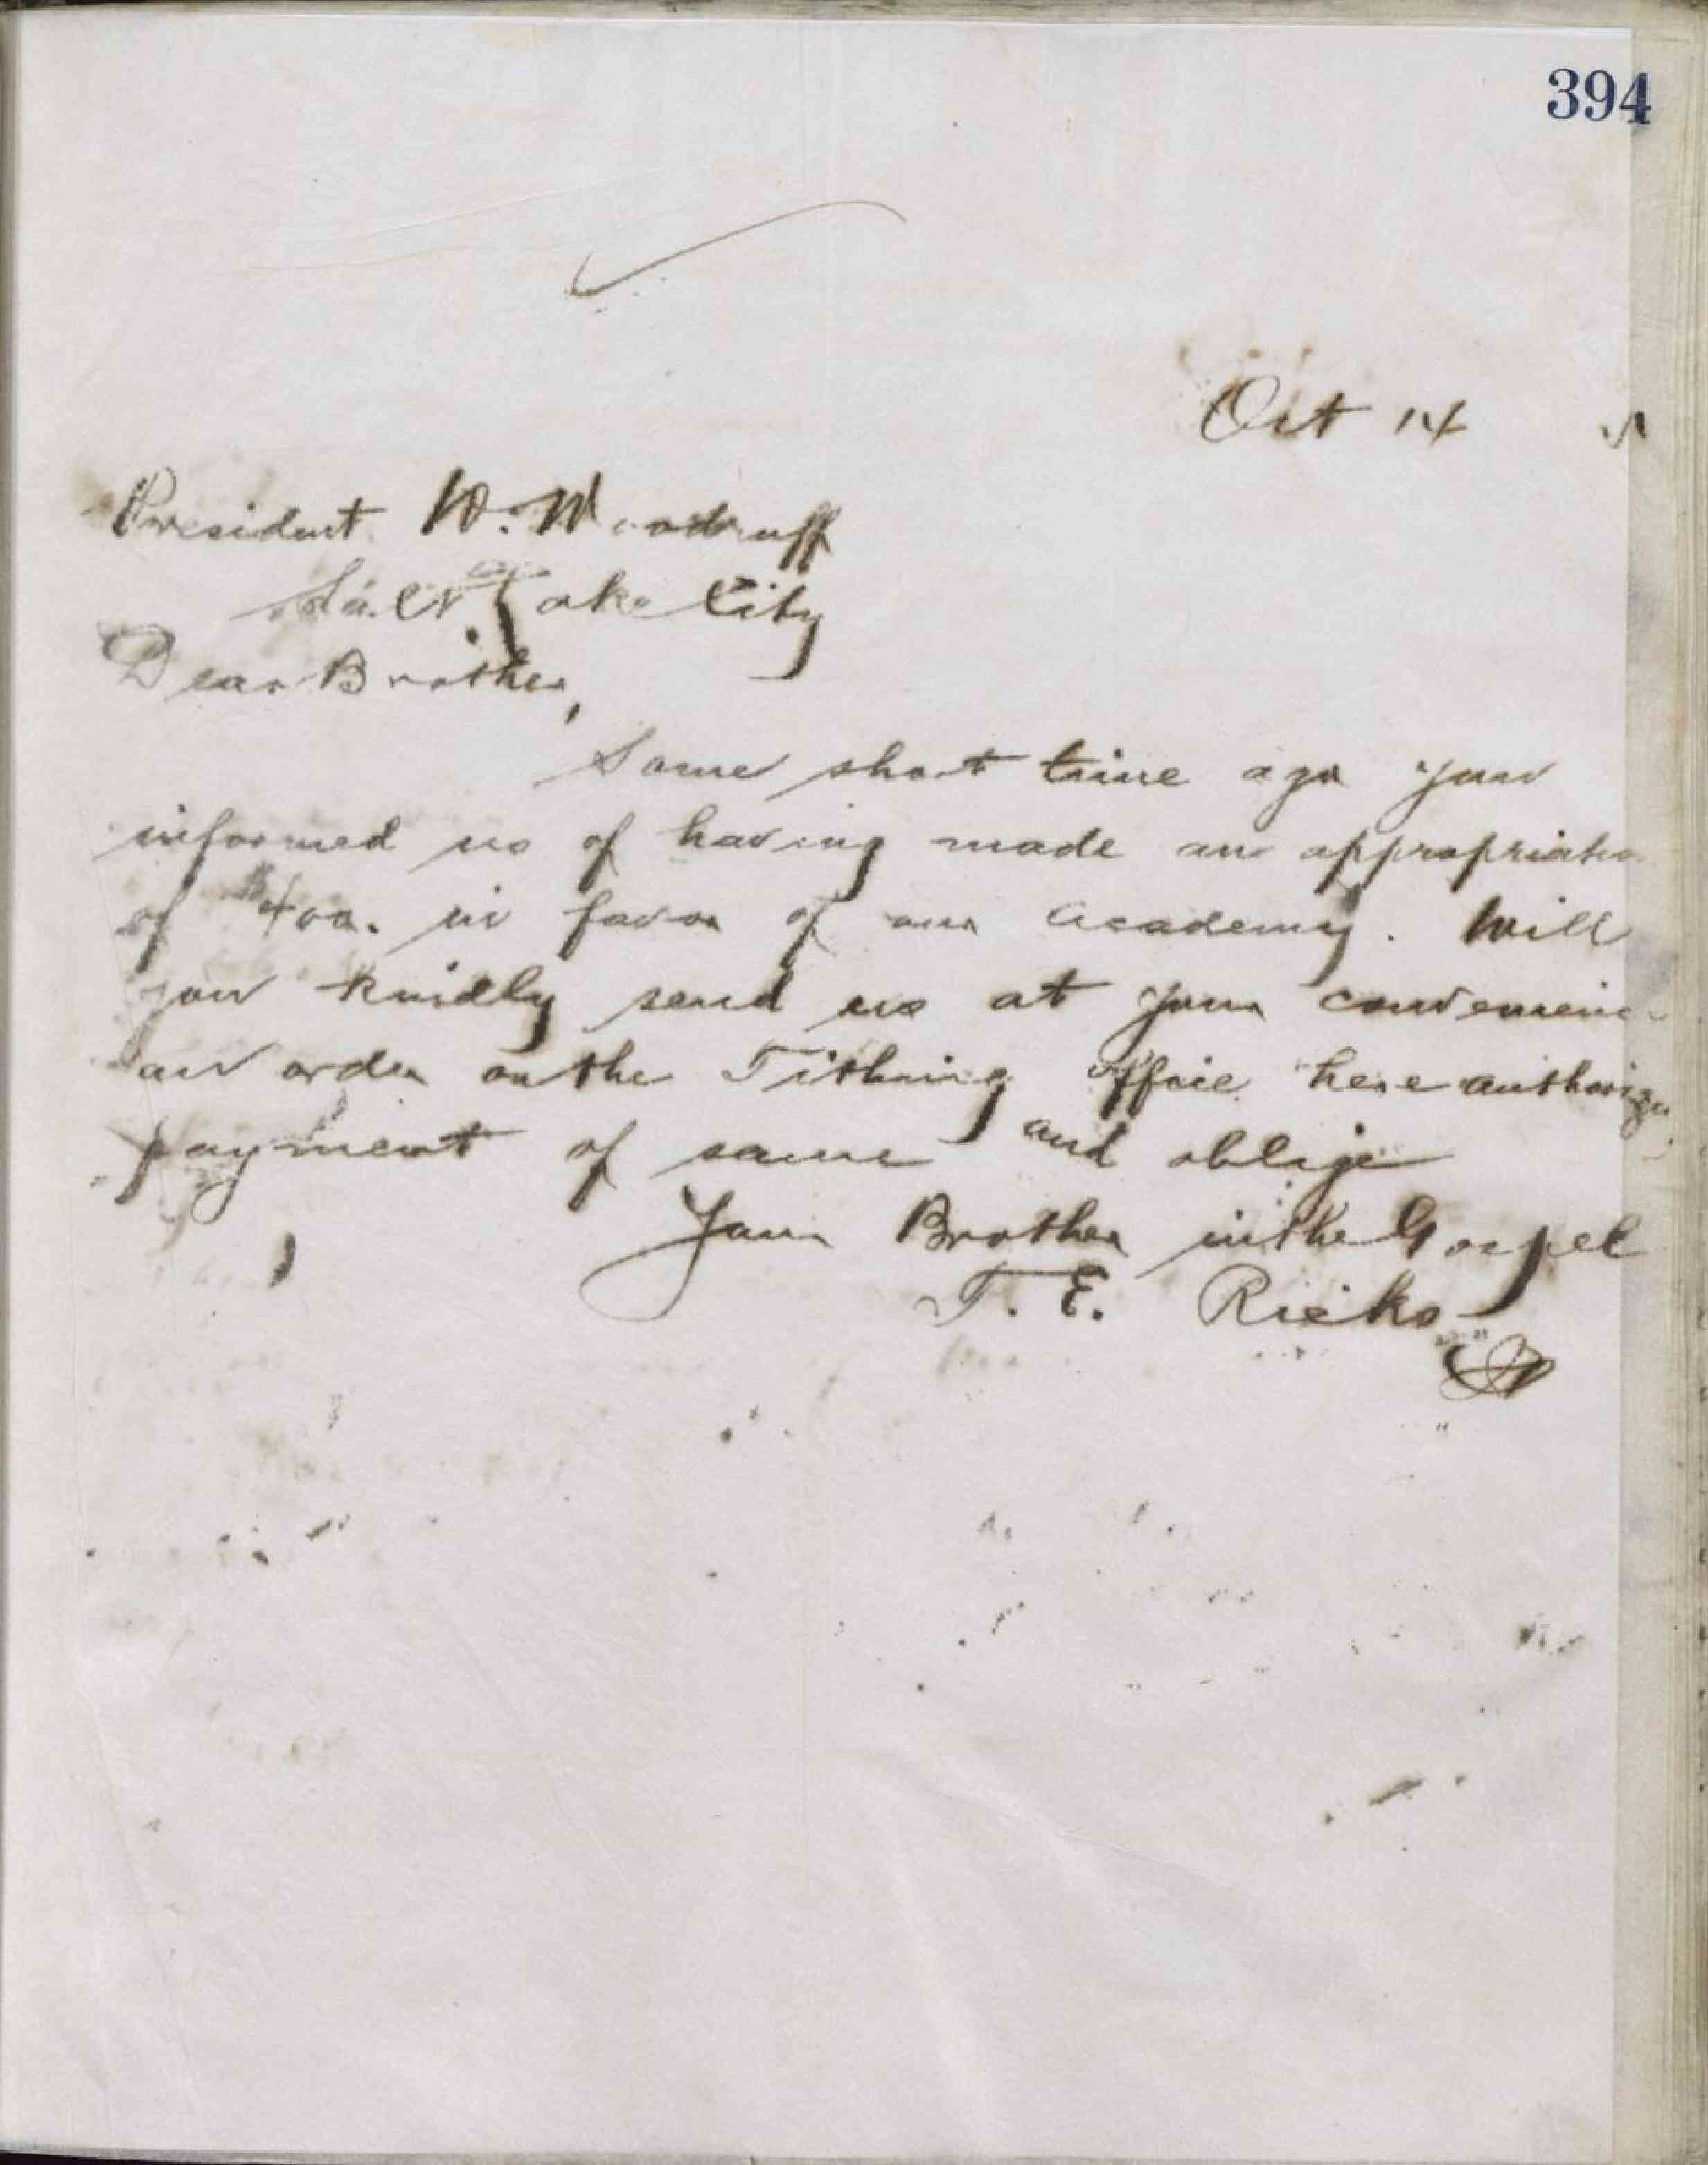 394
Oct 14
President W. Woodruff
Salt Lake City
Dear Brother,
Some short time ago you
informed us of having made an appropriation
of $400. in favor of our Academy. Will
you kindly send us at your convenience
an order on the Tithing Office here authorizing
payment of same and oblige
Your Brother in the Gospel
T. E. Ricks